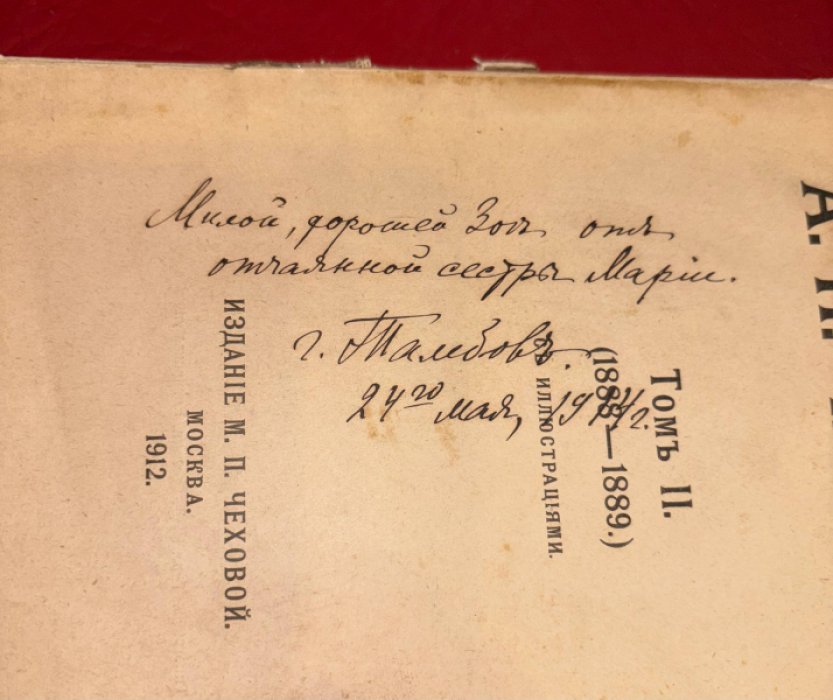 Милой, дорогой Зоѣ отъ
отчаянной сестры Маріи.
г. Тамбовъ.
24го мая, 1914 г.
А. П.
Томъ II.
(1888—1889.)
ИЛЛЮСТРАЦІЯМИ.
ИЗДАНІЕ М. П. ЧЕХОВОЙ.
МОСКВА.
1912.